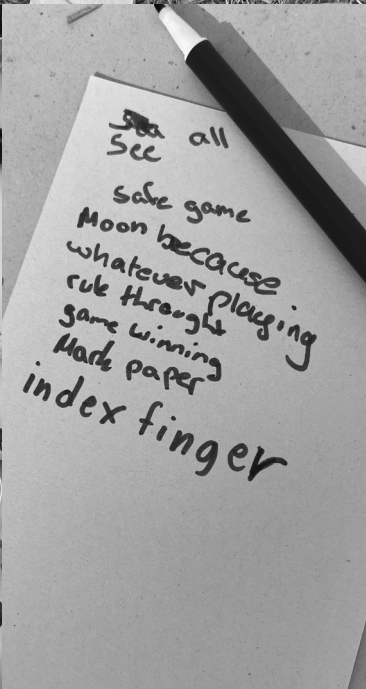 Sea all
See
safe game
Moon because
whatever playing
rule throught
game winning
Mark paper
index finger